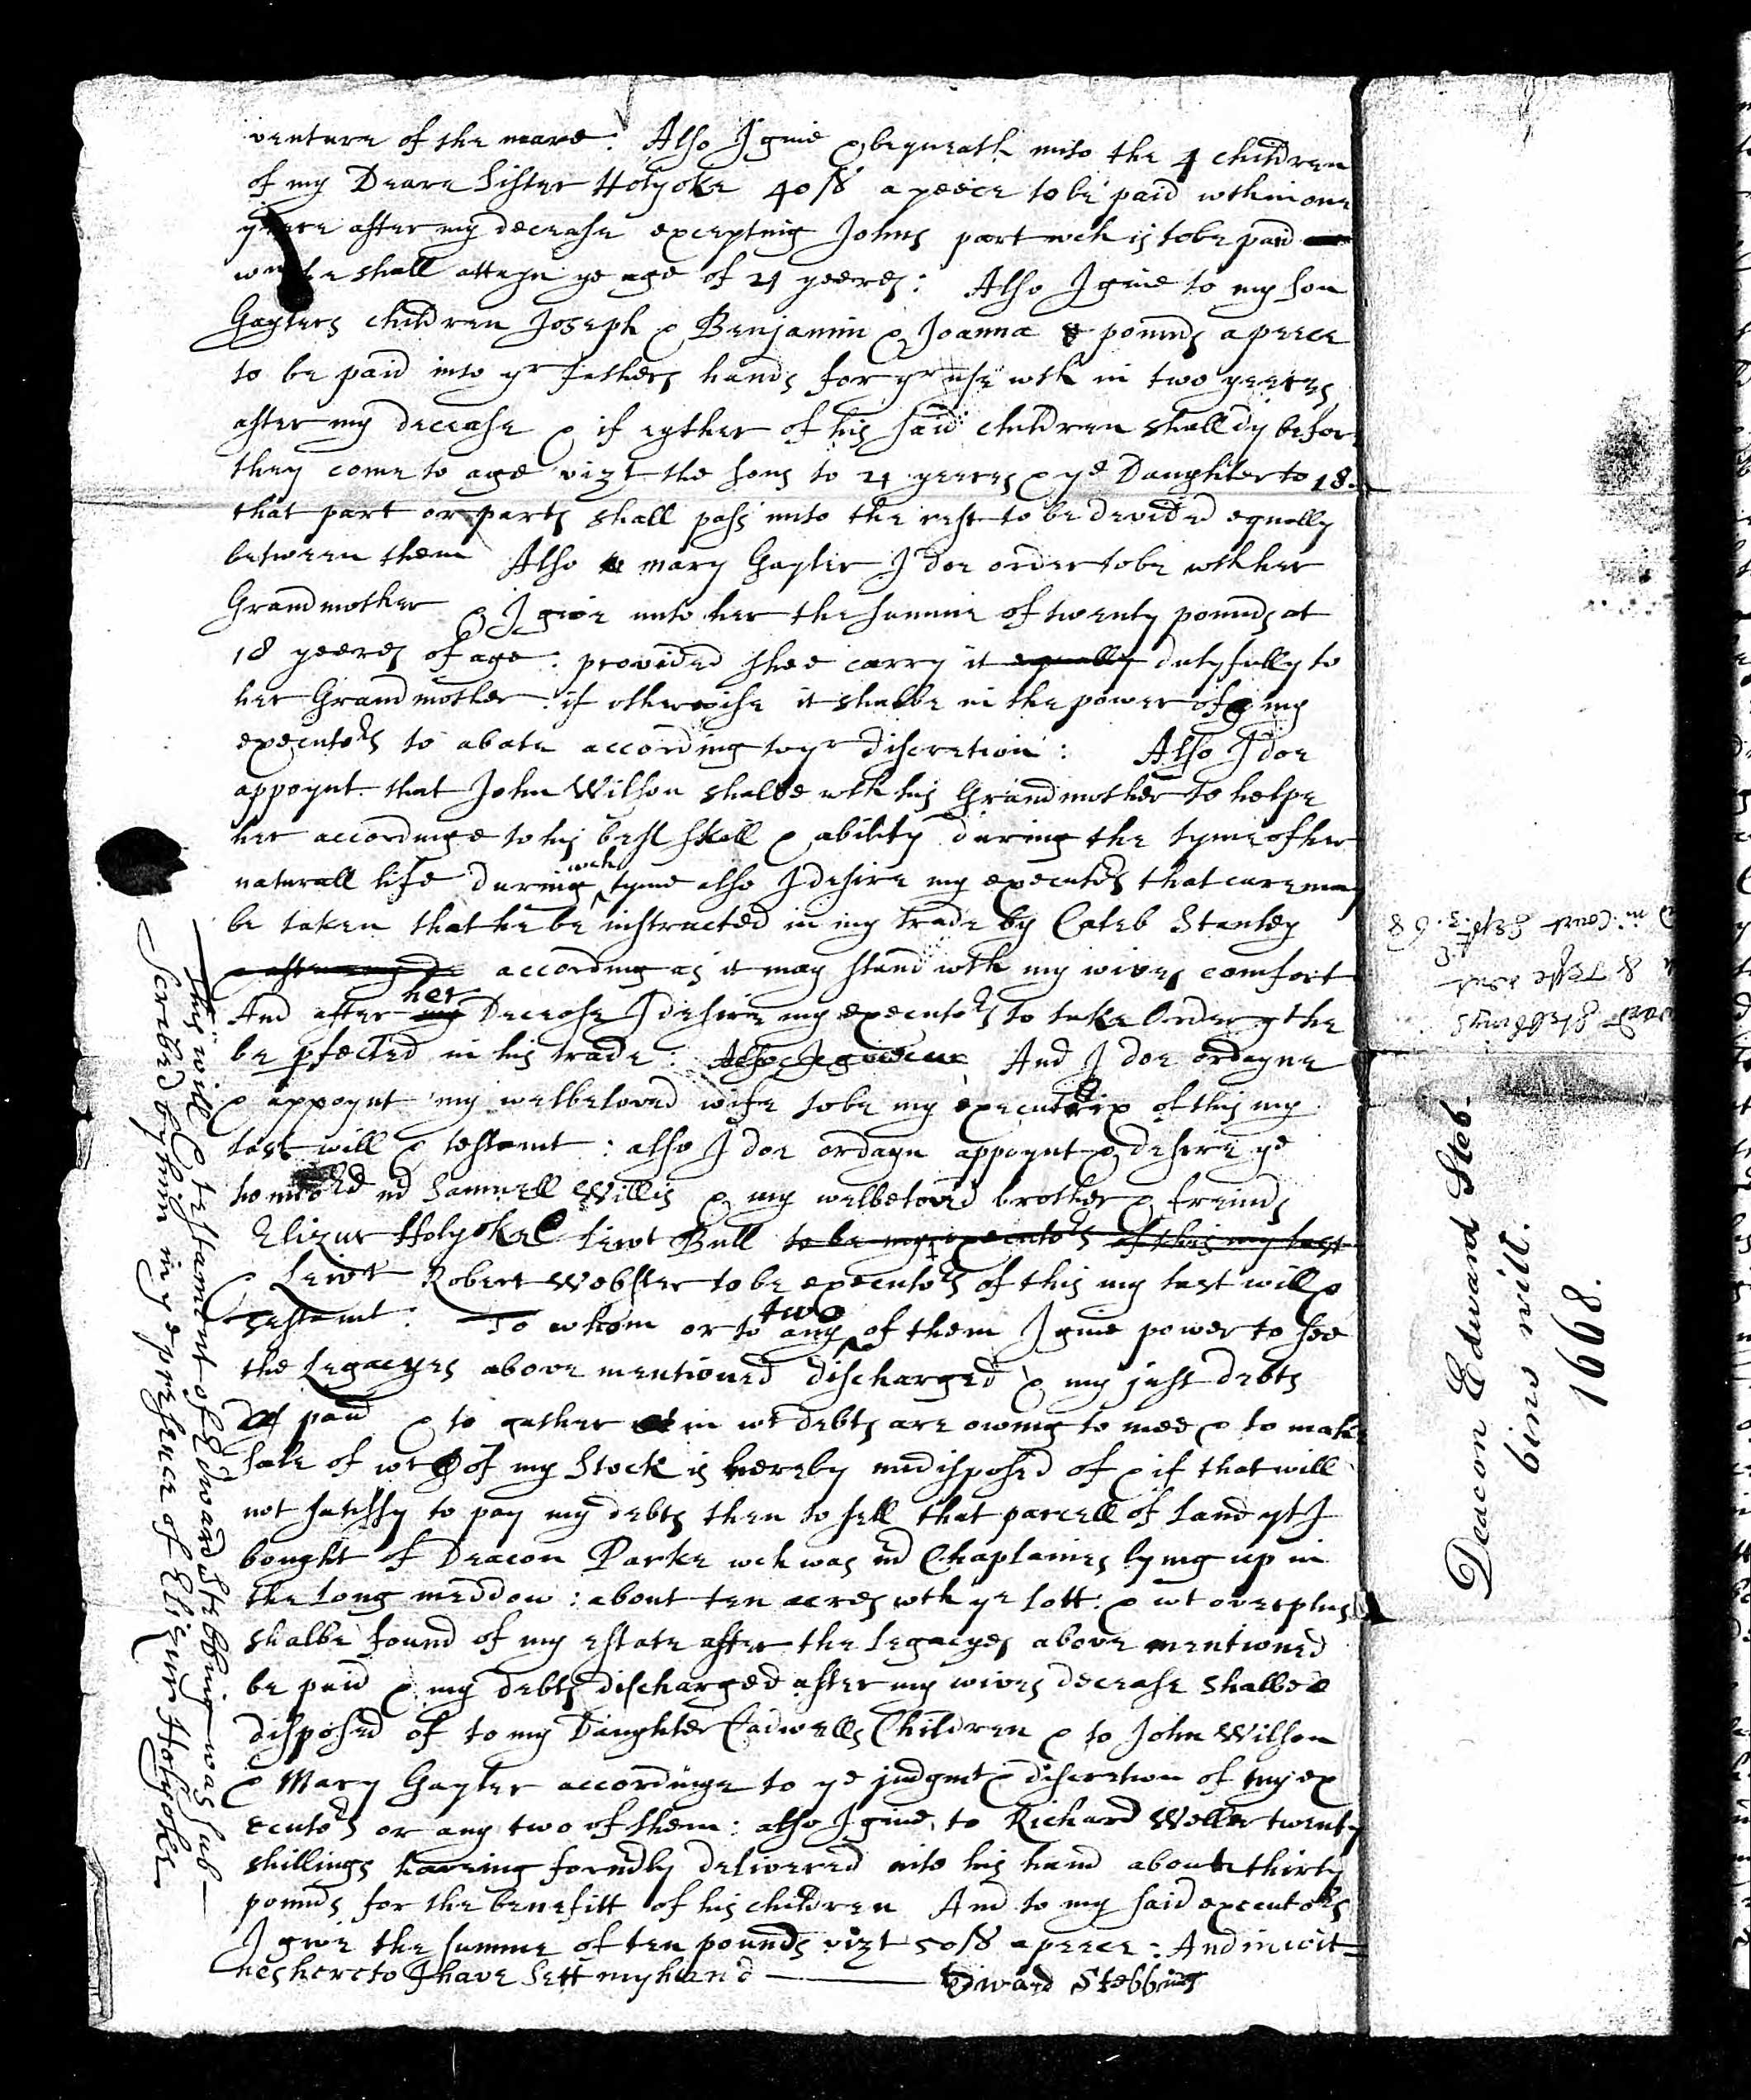 venture of the mare: Also I give & bequeath unto the 4 children
of my Deare Sister Holyoke 40ss a peece to be paid wthin one
yeere after my decease excepting Johns part wch is to be paid
wn he shall attayn ye age of 21 yeeres: Also I give to my son
Gaylers children Joseph & Benjamin & Joanna 8 pounds a peece
to be paid into yr fathers hands for yr use wth in two yeeres
after my decease & if eyther of his said children shall dy befor
they come to age vizt the sons to 21 yeeres & ye Daughter to 18
that part or parts shall pass unto the rest to be devided equally
between them Also mary Gayler I doe order to be wth her
Grandmother & I give unto her the summe of twenty pounds at
18 yeeres of age: provided shee carry it equally dutyfully to
her Grandmother if otherwise it shalbe in the power of my
executors to abate according to yr discretion: Also I doe
appoynt that John Wilson shalbe wth his Grandmother to helpe
her accordinge to his best skill & ability during the tyme of her
naturall life during wch tyme also I desire my executors that care may
be taken that he be instructed in my trade by Caleb Stanley
& after my de according as it may stand wth my wives comfort
And after my her Decease I desire my executors to take Order yt he
be pfected in his trade: Also I give And I doe ordayne
& appoynt my welbeloved wife to be my executrix of this my
last will & testamt: also I doe ordayn appoynt & desire ye
honored mr Samuell Willis & my welbeloved brother & freinds
Elizur Holyoke Lewt Bull to be my executors of this my last
& Lewt Robert Webster to be executors of this my last will &
testamt: To whom or to any two of them I give power to see
the Legacyes above mentioned discharged & my just debts
paid & to gather in wt debts are owing to mee & to make
sale of wt of my Stock is hereby undisposed of & if that will
not satisfy to pay my debts then to sell that parcell of land yt I
bought of Deacon Parke wch was mr Chaplaines lying up in
the long meddow: about ten acres wth ye lott: & wt overplus
shalbe found of my estate after the Legacyes above mentioned
be paid & my debts discharged after my wives decease shalbe
disposed of to my Daughter Cadwells Children & to John Wilson
& Mary Gayler accordinge to ye judgmt & discretion of my ex
ecutors or any two of them: also I give to Richard Weller twenty
shillings haveing formrly delivered into his hand about thirty
pounds for the benefitt of his children And to my said executors
I give the summe of ten pounds vizt 50ss a peece: And in wit-
nes hereto I have sett my hand Edward Stebbing
This will & testament of Edward Stebbing was sub-
scribed by him in ye presence of Elizur Holyoke
in Court Sept: 3: 68
Deacon Edward Steb-
bins will.
1668.